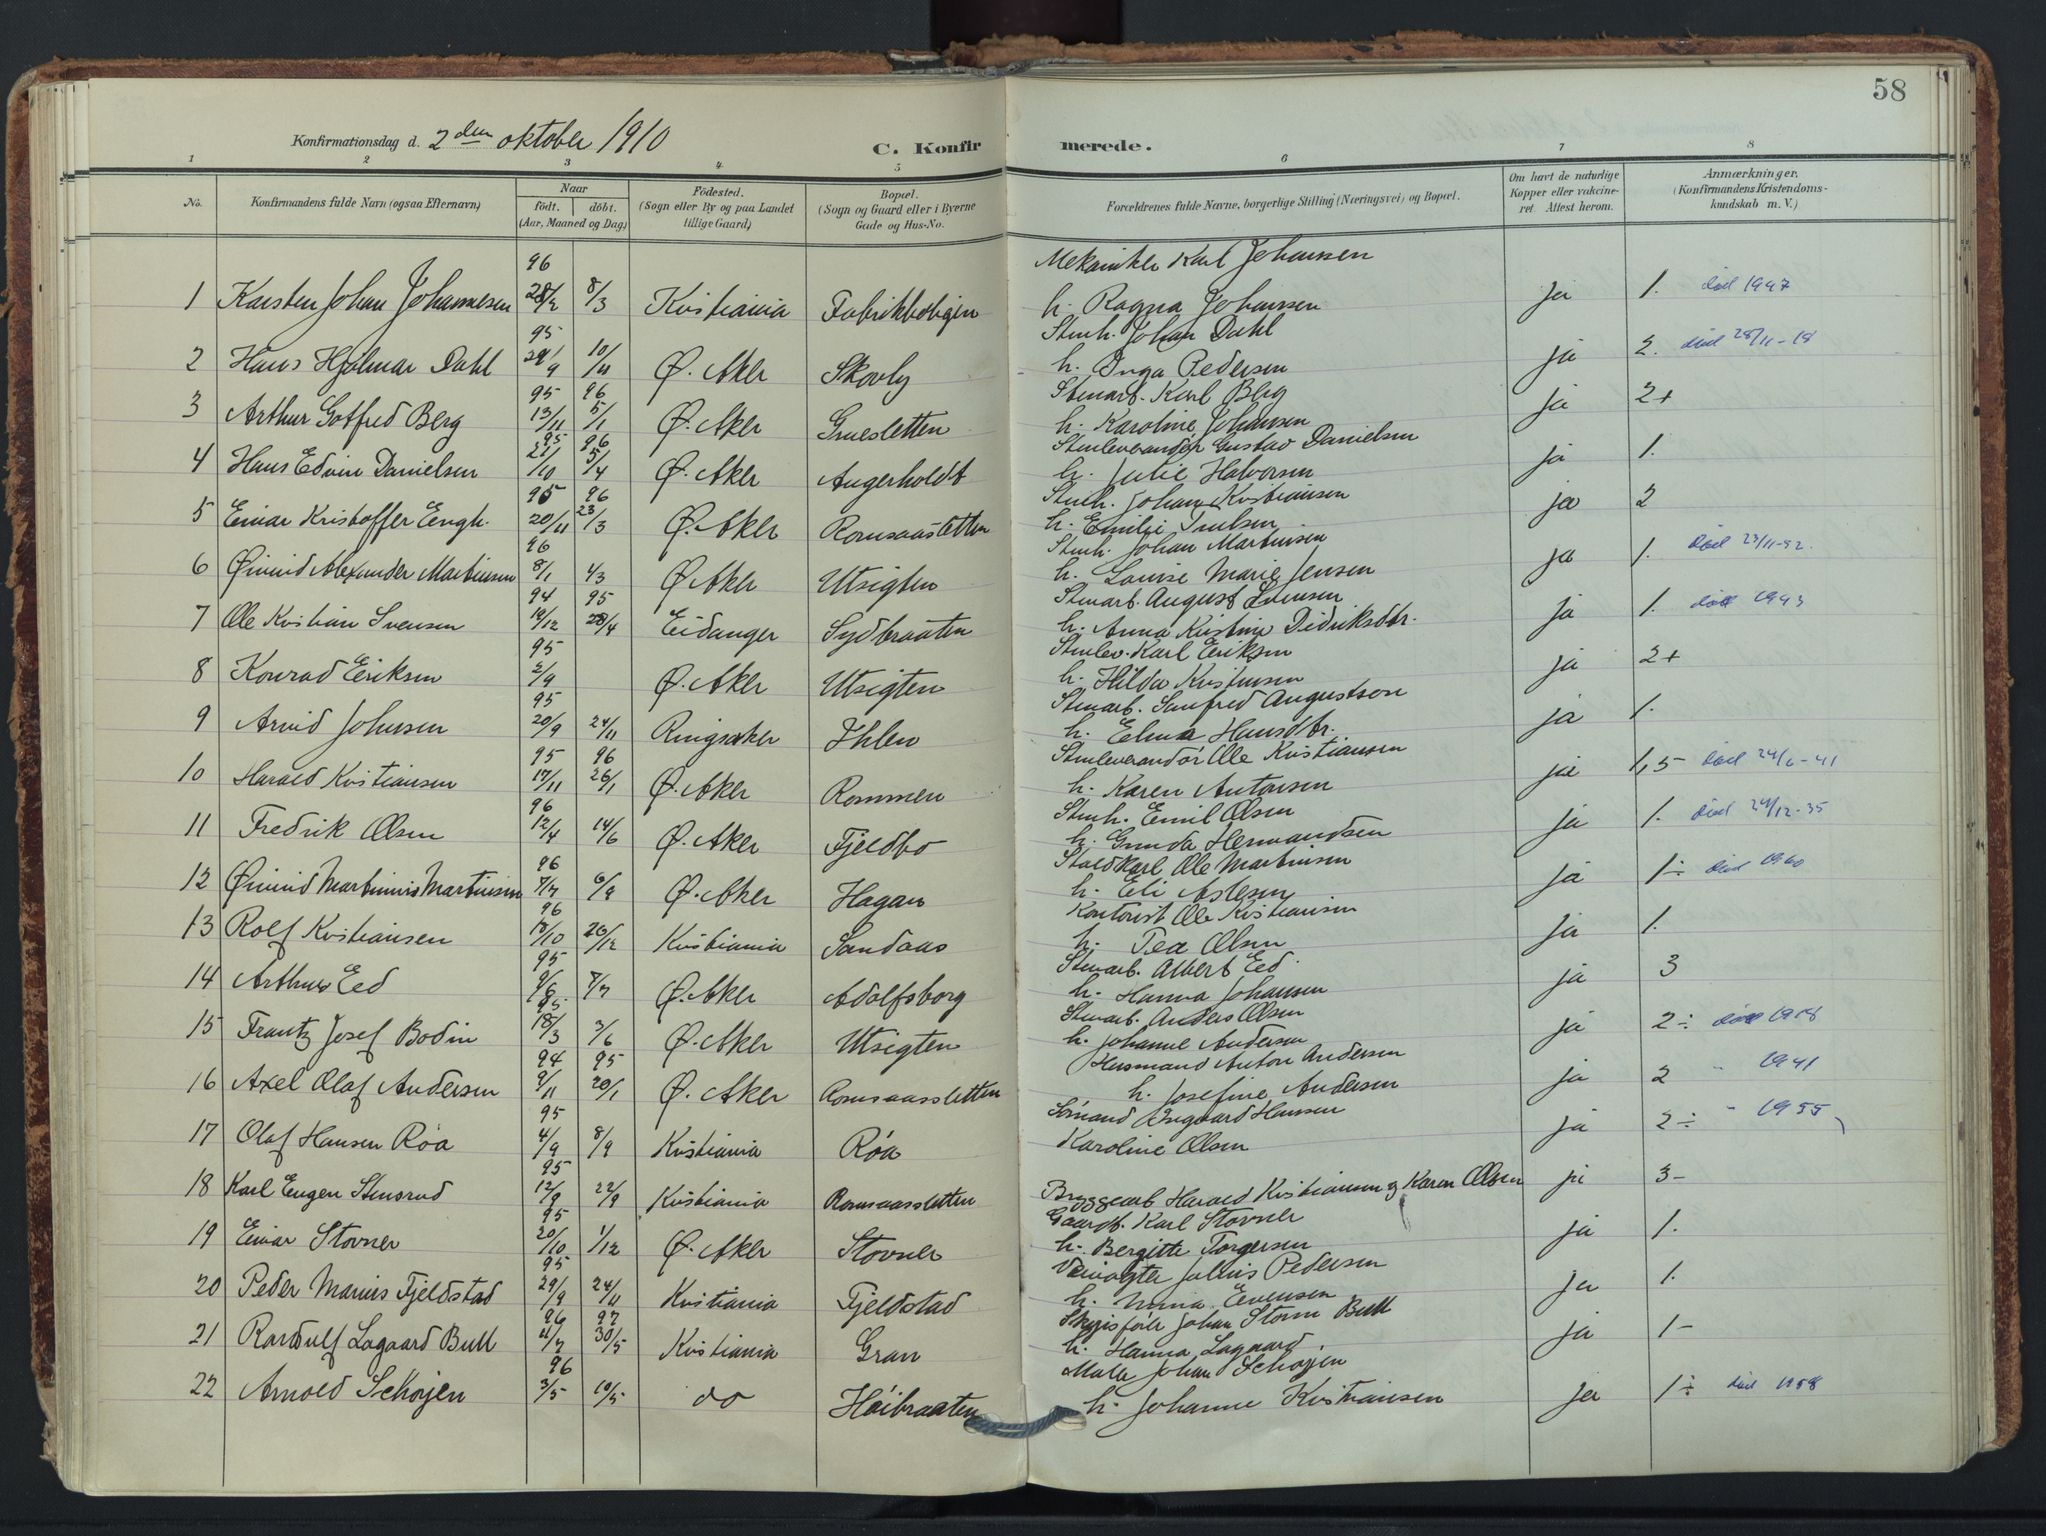 58
Konfirmationsdag d. 2den oktober 1910
C. Konfirmerede.
1 2 3 4 5 6 7 8
No. Konfirmandens fulde Navn (ogsaa Efternavn) Naar født. døbt. (Aar, Maaned og Dag) Födested. (Sogn eller By og paa Landet tillige Gaard) Bopæl. (Sogn og Gaard eller i Byerne Gade og Hus-No. Forældrenes fulde Navne, borgerlige Stilling (Næringsvei) og Bopæl. Om havt de naturlige Kopper eller vaccineret. Attest herom. Anmærkninger. (Konfirmandens Kristendomskundskab m. V.)
96 Mekaniker Karl Johansen
1 Karsten Johan Johannesen 28/2 8/3 Kristiania Fabrikboligen h. Ragna Johanssen ja 1. død 1997
95 Stenh. Johan Dahl
2 Hans Hjalmar Dahl 29/9 10/11 Ø. Aker Skovly h. Inga Pedersen ja 2. død 28/11-18
95 96 Stenarb. Karl Berg
3 Arthur Gotfred Berg 13/11 5/1 Ø. Aker Gruesletten h. Karoline Johansen ja 2+
95 96 Stenleverandør Gustav Danielsen
4 Hans Edvin Danielsen 21/10 5/4 Ø. Aker Augerholdt h. Julie Halvorsen ja 1.
95 96 Stenh. Johan Kristiansen
5 Einar Kristoffer Engh. 20/11 23/3 Ø. Aker Romsaassletten h. Emilie Trulsen ja 2
96 Stenh. Johan Martinsen
6 Øivind Alexander Martinsen 8/1 4/3 Ø Aker Utsigten h. Louise Marie Jensen ja 1. død 23/11-52.
94 95 Stenarb. August Svensen
7 Ole Kristian Svensen 19/12 28/4 Eidanger Sydbraaten h. Anna Kristine Didriksdtr. ja 1. død 1943
95 Stenlev. Karl Eriksen
8 Konrad Eriksen 2/9 Ø. Aker Utsigten h. Hilda Kristensen ja 2+
95 Stenarb. Sanfred Augustson
9 Arvid Johnsen 20/9 24/11 Ringsaker Ihlen h. Elma Hansdtr. ja 1.
95 96 Stenleverandør Ole Kristiansen
10 Harald Kristiansen 17/11 26/1 Ø. Aker Rommen h. Karen Antonsen ja 1,5 død 24/6-41
96 Stenh. Emil Olsen
11 Fredrik Olsen 12/4 14/6 Ø. Aker Fjeldbo h. Gunda Hermandsen ja 1. død 24/12-35
96 Staldkarl Ole Martinsen
12 Øivind Martinius Martinsen 7/7 6/9 Ø. Aker Hagan h. Eli Aslesen ja 1÷ død 1960
96 Kontorist Ole Kristiansen
13 Rolf Kristiansen 18/10 26/12 Kristiania Sandaas h. Tea Olsen ja 1.
95 Stenarb. Albert Eed.
14 Arthur Eed 9/6 7/7 Ø. Aker Adolfsborg h. Hanna Johansen ja 3
95 Stenarb. Anders Olsen
15 Frantz Josef Bodin 18/3 3/6 Ø. Aker Utsigten h. Johanne Andersen ja 2÷ død 1918
94 95 Husmand Anton Andersen
16 Axel Olaf Andersen 9/11 20/1 Ø. Aker Romsaassletten h. Josefine Andersen ja 2 " 1941
95 Sømand Ingvard Hansen
17 Olaf Hansen Røa 4/9 8/9 Kristiania Røa Karoline Olsen ja 2÷ " 1955
95
18 Karl Eugen Stensrud 12/8 22/9 Kristiania Romsaassletten Bryggearb Harald Kristiansen og Karen Olsen ja 3-
95 Gaardb. Karl Stovner
19 Einar Stovner 20/10 1/12 Ø. Aker Stovner h. Bergitte Torgersen ja 1.
95 Veivogter Julius Pedersen
20 Peder Marius Fjeldstad 29/9 24/11 Kristiania Fjeldstad h. Mina Evensen ja 1.
96 97 Johan Storm Bull
21 Rardulf Lagaard Bull 4/7 30/5 Kristiania Gran h. Hanna Lagaard ja 1-
96 Maler Johan Schøjen
22 Arnold Schøjen 3/5 10/5 do Høibraaten h. Johanne Kristiansen ja 1÷ død 1958